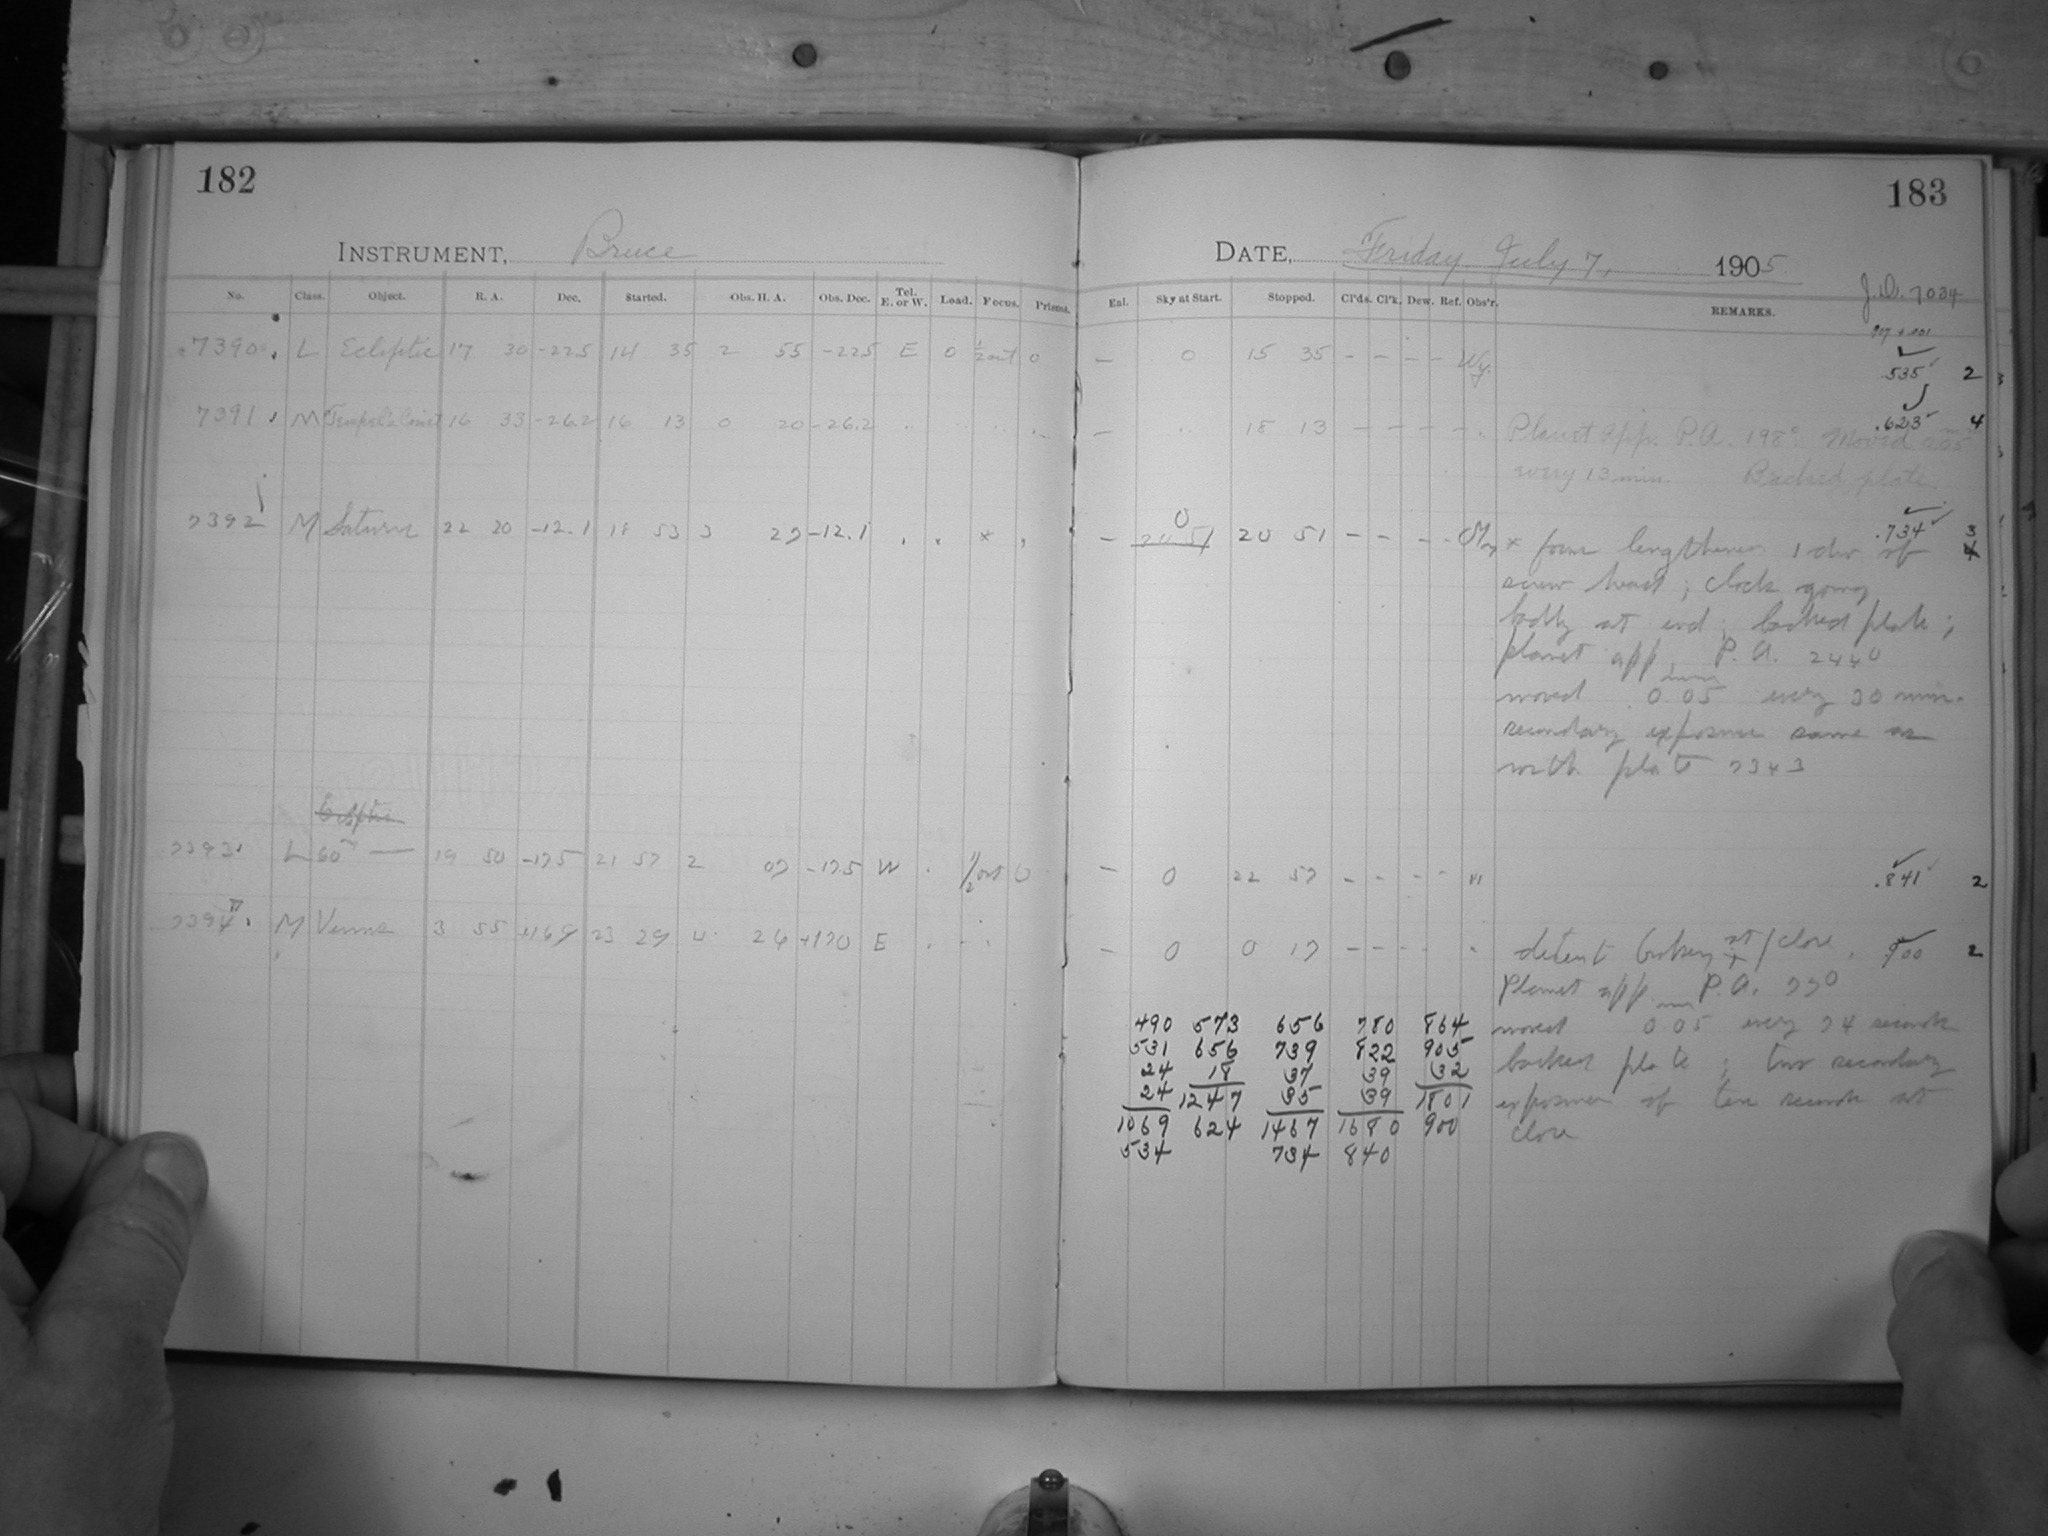 182
INSTRUMENT, Bruce
No. Class. Object. R. A. Dec. Started. Obs. H. A. Obs. Dec. Tel. E. or W. Load. Focus. Prisms.
7390 L Ecliptic 17 30 -22.5 14 35 2 55 -22.5 E 0 ½ out 0
7391 M Tempel's Comet 16 33 -26.2 16 13 0 20 -26.2
7392 M Saturn 22 20 -12.1 18 53 3 27 -12.1 *
Ecliptic
7393 L 60m — 19 50 -17.5 21 57 2 07 -17.5 W ½ out 0
7394 M Venus 3 55 +16.9 23 29 4 26 +17.0 E
183
DATE, Friday, July 7, 1905
J.D. 7034
Enl. Sky at Start. Stopped. Cl'ds. Cl'k. Dew. Ref. Obs'r. REMARKS.
— 0 15 35 — — — — Wy. .535 2
— 18 13 — — — — Planet app. P.A. 198°. Moved 0.05 .623 4
every 13 min. Backed plate.
0
— 20 51 20 51 — — — — * focus lengthened 1 div of .734 3
screw head; clock going
badly at end; backed plate;
planet app. P.A. 244°
moved 0.05 every 30 min.
secondary exposure same as
with plate 7343
— 0 22 57 - - - - " .841 2
— 0 0 17 — — — — detent broken at close. .900 2
Planet app. P.A. 77°
moved 0.05 every 74 seconds
backed plate; two secondary
exposures of ten seconds at
close
490 573 656 780 864
531 656 739 822 905
24 18 37 39 32
24 1247 35 39 1801
1069 624 1467 1680 900
534 734 840